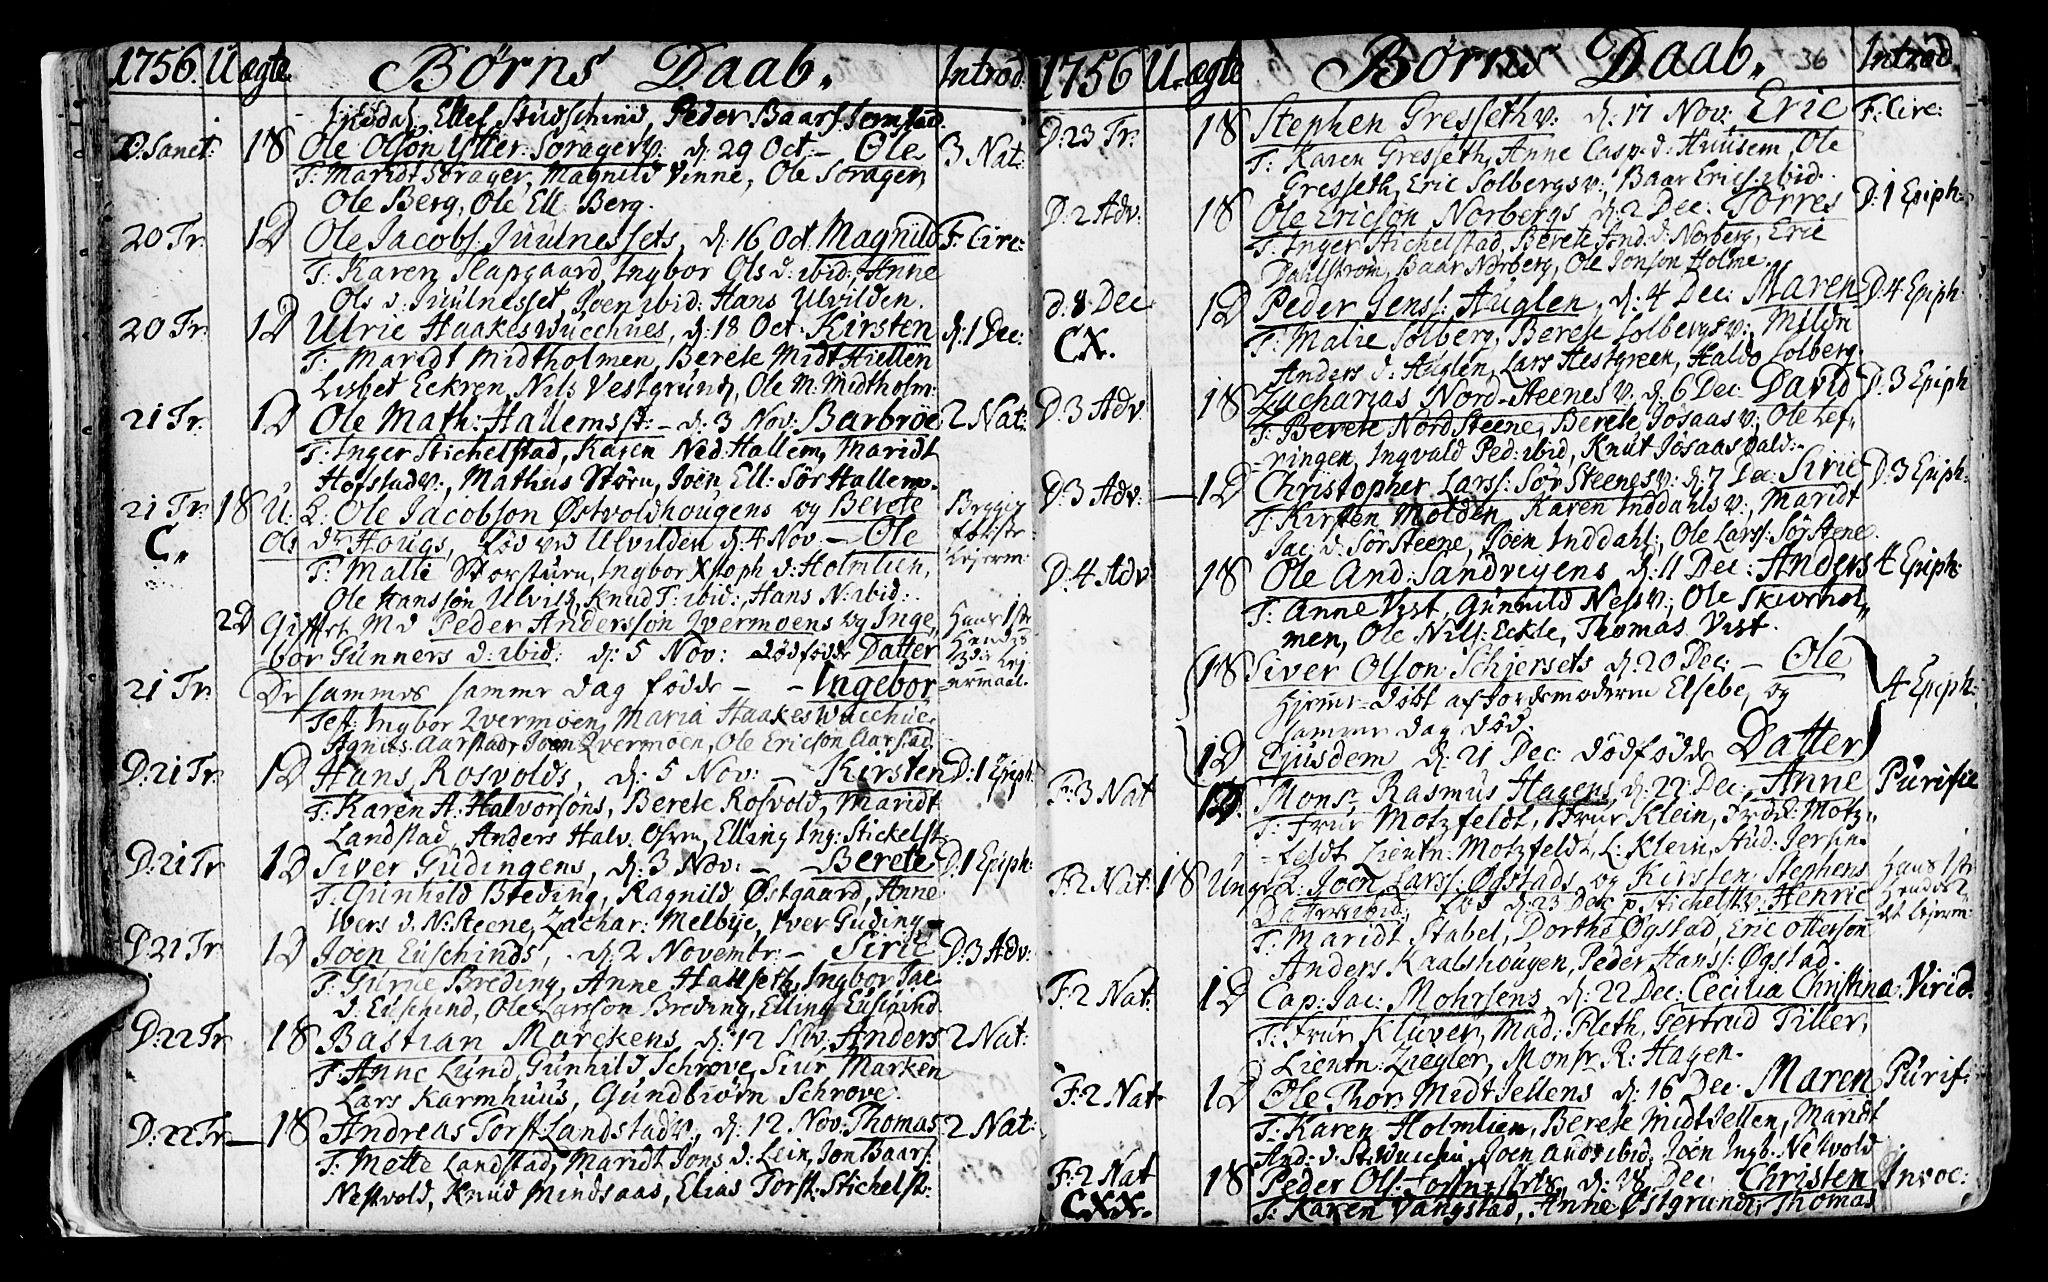 1756. Uægte. Børns Daab. Introd.
Ellef Stüdschind, Peder Baarss.
D. Sanct: 18 Ole Olsón Ytter-Søragerv: d: 29 Oct: - Ole 3 Nat:
T: Maridt Sørager, Magnild Vinne, Ole Sørager,
Ole Berg, Ole Ell: Berg.
20 Tr. 1D Ole Jacobs: Juulnessets, d: 16 Oct. Magnild F. Circ:
T: Karen Slapgaard, Ingbor Ols d: ibid:, Anne
Ols d: Juulnesset, Joen ibid: Hans Ulvilden.
20 Tr. 1D Ulric Haakes Wucchües, d: 18 Oct: Kirsten d: 1 Dec:
T: Maridt Midtholmen, Berete Midt Hiellen
Lisbet Eckren, Nils Vestgründ, Ole M: Midtholm:
21 Tr. 1D Ole Math: Hallemsst: - d: 3 Nov: Barbroe 2 Nat:
T: Inger Stichelstad, Karen Ned: Hallem, Maridt
Hofstadv:, Mathus Störu, Joen Ell: Sör Hallem.
21 Tr: 18 U: E: Ole Jacobsön Østvoldhougens og Berete
C. Ols dr Hougs, född ved Ulvilden d: 4 Nov: - Ole
T: Malie Storsturu, Ingbor Xstoph d: Holmlien,
Ole Hanssön Ulvild, Knud T: ibid:, Hans N: ibid:.
2D Giftet Md Peder Anderssön Qvermoens og Inge,,
bor Gunners d: ibid: d: 5 Nov: dödfödde Datter
21 Tr. De sammes samme dag födde - - Ingebor
Test: Ingbor Qvermoen, Maria Haakes Wucchue.
Agnits Aarstad, Joen Qvermoen, Ole Ericsön Aarstad.
D: 21 Tr. 1D Hans Rosvolds, d: 5 Nov: - Kirsten D: 1 Epiph:
T: Karen A: Halvorsöns, Berete Rosvold, Maridt
Landstad, Anders Halv: Elling Ing: Stickelst
D: 21 Tr 1D Siver Güdingens, d: 3 Nov: - Berete D: 1 Epiph:
T: Günhild Breding, Ragnild Østgaard, Anne
Ivers d: N: Steene, Zachar: Melbye, Iver Guding
D: 21 Tr. 1D Joen Eüschinds, d: 2 Novembr: - Siric D: 3 Adv:
T: Gürne Breding, Anne Hallseth, Ingbor Jac
d: Eüschind, Ole Larsson Breding, Elling Eüschind.
D: 22 Tr 18 Bastian Marckens, d: 12 Nov, Anders 2 Nat:
T: Anne Lünd, Günhild Schrove, Siur Marken
Lars Karmhuus, Gundbiörn Schrove.
D: 22 Tr. - 18 Andreas Torst: Landstadv:, d: 12 Nov: Thomas 2 Nat:
T: Mette Landstad, Maridt Jons d: Lein, Jon Baars:
Nestvold, Knüd Mindsaas, Elias Torst: Stichelst:
1756 U-ægte Børns Daab. 36 Introd.
D: 23 Tr. 18 Stephen Gresseth v: d: 17 Nov: Eric F. Circ:
T: Karen Gresseth, Anne Casp: d: Huusem, Ole
Gresseth, Eric Solbergs v:, Baar Erics: ibid.
D: 2 Adv. 18 Ole Ericsön Norbergs, d: 2 Dec: Torres D: 1 Epiph:
T: Inger Stichelstad, Berete And: d: Norberg, Eric
Dahlström, Baar Norberg, Ole Jonson Holme.
d: 8 Dec 1D Peder Jens: Auglen, d: 4 Dec: Maren D: 4 Epiph:
CX. T: Malie Solberg, Berete Solbergs v:, Mildri
Anders d: Auglen, Lars Hestgreen, Haldo Solberg.
D: 3 Adv 18 Zacharias Nord-Steenes v: d: 6 Dec: David D: 3 Epiph:
T: Berete Nord Steene, Berete Josaas v:, Ole Lef,,
ringen, Ingvald Ped: ibid, Knüt Josaas Dald:
D: 3 Adv: - 1D Christopher Larss: Sör Steenes v: d: 7 Dec: Siric D: 3 Epiph:
T: Kirsten Molden, Karen Inddahls v:, Maridt
Jac: d: Sör Steene, Joen Inddahl:, Ole Larss: Sörsteene.
D: 4 Adv 18 Ole And: Sandvigens d: 11 Dec: Anders 4 Epiph:
T: Anne Vist, Günnild Ness v:, Ole Skierhol,,
men, Ole Nils: Eckle, Thomas Vist.
18 Siver Olson Schjersets d: 20 Dec: - Ole
Hjemme-Döbt af Jordemoderen Elsebe, og 4 Epiph:
samme dag död.
1D Ejusdem d: 21 Dec: dödfödde Datter
F: 3 Nat 1D. Monsr Rasmus Hagens d: 22 Dec: Anne Purific
T: Frür Motzfeldt, Frür Klein, Frök: Motz-
feldt Lieutn: Motzfeldt, L: Klein, Stud: Jersin.
F: 2 Nat: 18 Ung: L: Joen Larss: Øgstads og Kirsten Stephens
Datter ibid: föd d: 23 Dec p Stichelst: Henric
T: Maridt Stabel, Dorthe Øgstad, Eric Otterson
Anders Kaalshougen, Peder Hanss: Øgstad.
F: 2 Nat: 1D Cap: Jac: Mohrsens, d: 22 Dec: Cecilia Christina. Virid.
T: Frür Klüver, Mad: Pleth, Gertrud Tiller,
Lieutn: Ziegler, Monsr R: Hagen.
F: 2 Nat 1D Ole Thors Midt Jellens d: 16 Dec: Maren Purif:
T: Karen Holmlien, Berete Midt Jellen, Maridt
And: d: St: Wucchu, Joen Auds ibid, Joen Ingb: Nestvold
F: 2 Nat 18 Peder Ols: d: 18 Dec: Christen Invoc:
CXX. T: Karen Vangstad, Anne Østgrund, Thomas